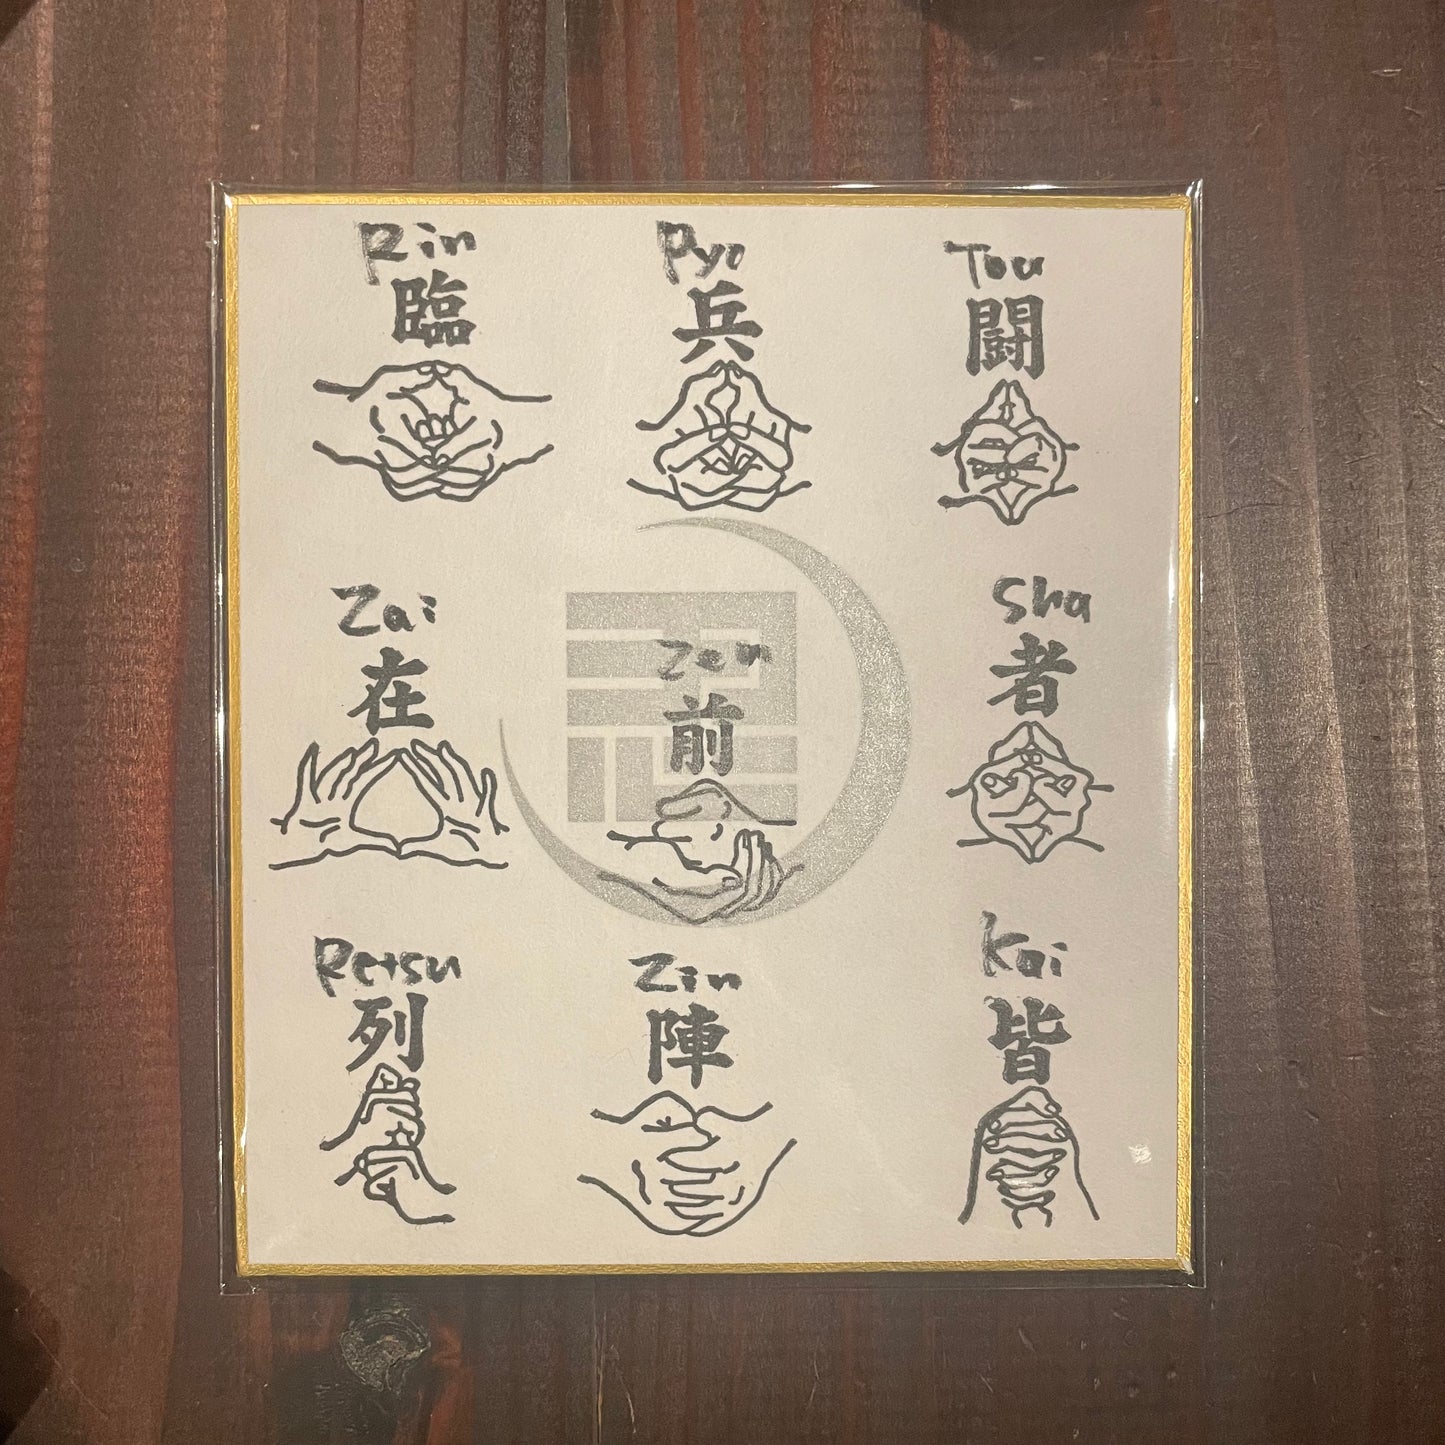 Rin
臨
Pyo
兵
Tou
闘
Zai
在
Zen
前
Sha
者
Retsu
列
Zin
陣
Kai
皆